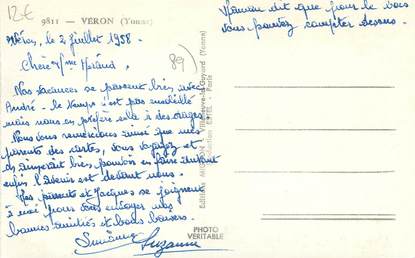 12€
9811 - VÉRON (Yonne)
Véron, le 2 juillet 1958.
Chère Mme
89
Nos vacances se passent très bien avec
André - le temps n'est pas ensoleillé
mais nous en préfère cela à des orages.
Nous vous remercions ainsi que mes
parents des cartes, vous voyagez et
ils aimeraient bien pouvoir en faire autant
enfin l'avenir est devant nous.
Mes parents et Jacques se joignent
à moi pour vous envoyer nos
bonnes amitiés et bons baisers.
Suzanne
Maman dit que pour le bois
vous pouvez compter dessus.
Éditions
PHOTO
VÉRITABLE